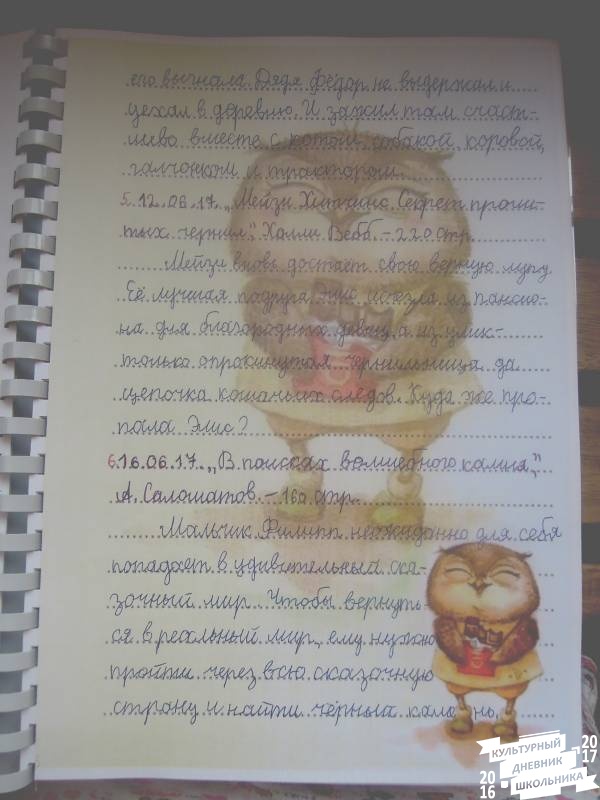 его выгнала. Дядя Фёдор не выдержал и
уехал в деревню. И зажил там счаст-
ливо вместе с котом, собакой, коровой,
галчонком и трактором.
5. 12.06.17. „Мейзи Хитчинс. Секрет проли-
тых чернил". Холли Вебб. – 220 стр.
Мейзи вновь достаёт свою верную лупу
Её лучшая подруга Элис исчезла из пансио-
на для благородных девиц, а из улик-
только опрокинутая чернильница да
цепочка кошачьих следов. Куда же про-
пала Элис?
6.16.06.17. „В поисках волшебного камня"
А. Саломатов. – 160 стр.
Мальчик Филипп неожиданно для себя
попадает в удивительный ска-
зочный мир. Чтобы вернуть-
ся в реальный мир, ему нужно
пройти через всю сказочную
страну и найти чёрный камень.
КУЛЬТУРНЫЙ
ДНЕВНИК
ШКОЛЬНИКА
2016
2017